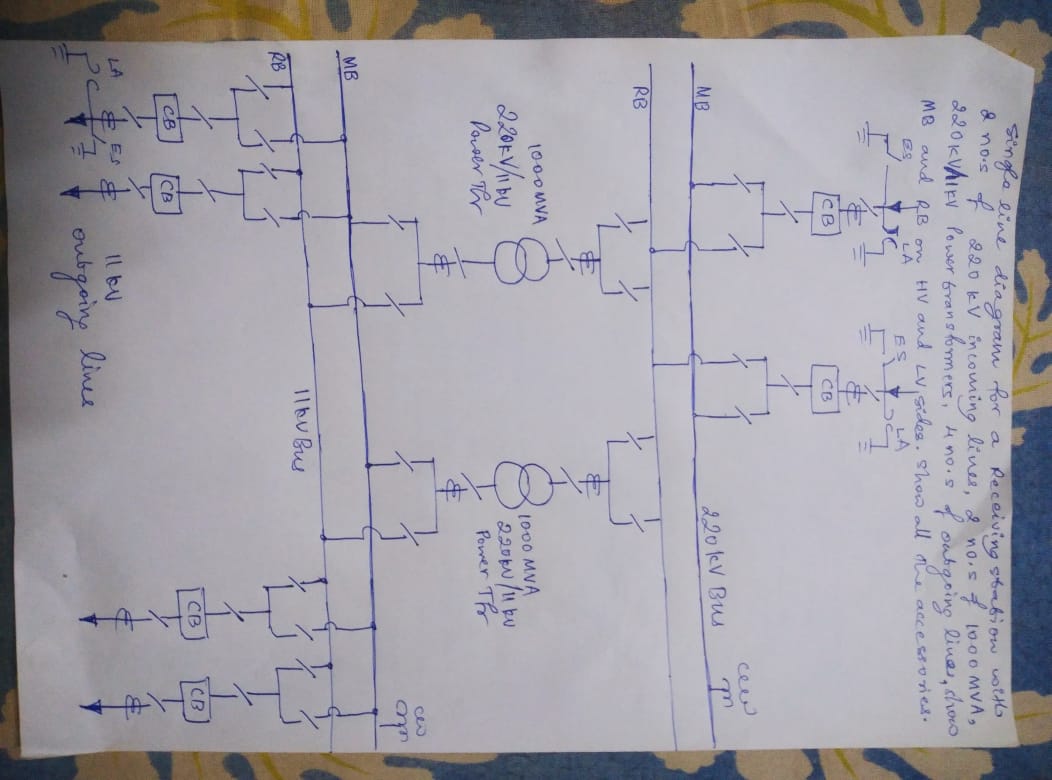 Single line diagram for a Receiving station with
2 no.s of 220 kV incoming lines, 2 no.s of 1000 MVA,
220kV/11kV Power transformers, 4 no.s of outgoing lines, show
MB and RB on HV and LV sides. Show all the accessories.
ES
LA
ES
LA
CB
CB
MB
220kV Bus
RB
1000 MVA
220kV/11kV
Power Tfr
1000 MVA
220kV/11kV
Power Tfr
MB
RB
11kV Bus
CB
CB
CB
CB
LA
ES
11 kV
outgoing lines